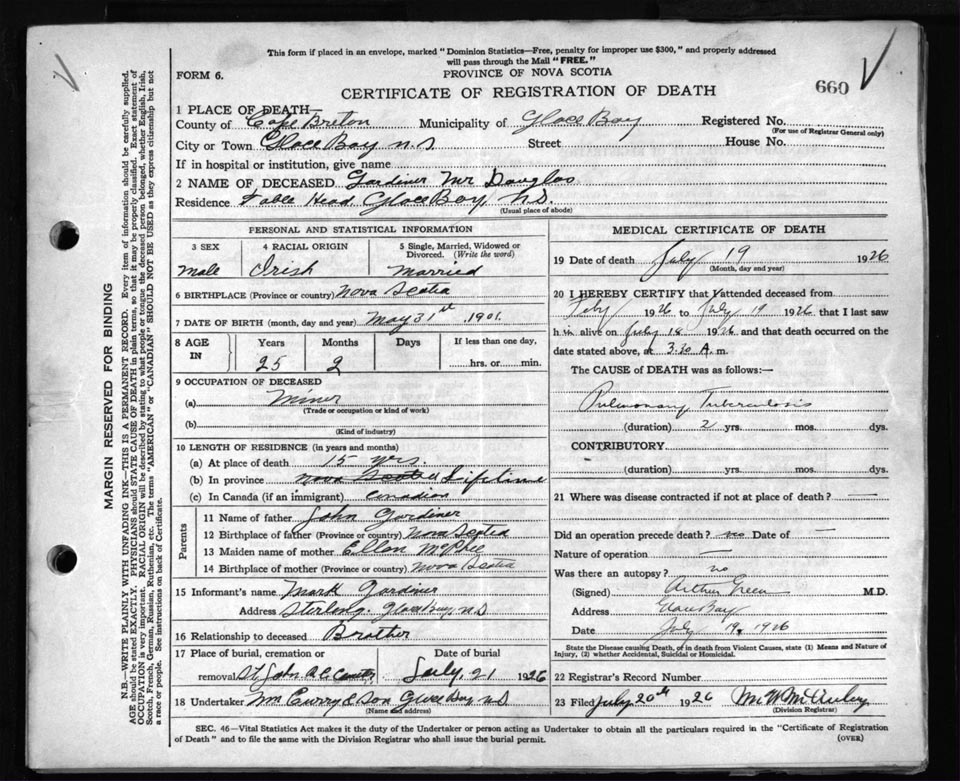 This form if placed in an envelope, marked "Dominion Statistics—Free, penalty for improper use $300," and properly addressed
will pass through the Mail "FREE."
FORM 6.
PROVINCE OF NOVA SCOTIA
CERTIFICATE OF REGISTRATION OF DEATH
660
1 PLACE OF DEATH—
County of Cape Breton Municipality of Glace Bay Registered No.
(For use of Registrar General only)
City or Town Glace Bay N.S Street House No.
If in hospital or institution, give name
2 NAME OF DECEASED Gardiner Mr Douglas
Residence Table Head Glace Bay, N.S.
(Usual place of abode)
PERSONAL AND STATISTICAL INFORMATION
3 SEX 4 RACIAL ORIGIN 5 Single, Married, Widowed or
Divorced. (Write the word)
Male Irish Married
6 BIRTHPLACE (Province or country) Nova Scotia
7 DATE OF BIRTH (month, day and year) May 31st 1901.
8 AGE IN Years Months Days If less than one day,
25 2 hrs. or min.
9 OCCUPATION OF DECEASED
(a) Miner
(Trade or occupation or kind of work)
(b)
(Kind of industry)
10 LENGTH OF RESIDENCE (in years and months)
(a) At place of death 15 yrs.
(b) In province Nova Scotia Lifetime
(c) In Canada (if an immigrant) Canadian
Parents
11 Name of father John Gardiner
12 Birthplace of father (Province or country) Nova Scotia
13 Maiden name of mother Ellen McPhee
14 Birthplace of mother (Province or country) Nova Scotia
15 Informant's name Mark Gardiner
Address Sterling. Glace Bay, N.S
16 Relationship to deceased Brother
17 Place of burial, cremation or Date of burial
removal St John R.C. July, 21 1926
18 Undertaker Wm Curry & Son Glace Bay N.S
(Name and address)
MEDICAL CERTIFICATE OF DEATH
19 Date of death July 19 1926
(Month, day and year)
20 I HEREBY CERTIFY that I attended deceased from
1926 to July 19 1926 that I last saw
h im alive on July 1926 and that death occurred on
date stated above, at 3.30 A. m.
The CAUSE of DEATH was as follows:—
Pulmonary Tuberculosis
(duration) 2 yrs. mos. dys.
CONTRIBUTORY
(duration) yrs. mos. dys.
21 Where was disease contracted if not at place of death? —
Did an operation precede death? no Date of —
Nature of operation —
Was there an autopsy? no
(Signed) Arthur Green M.D.
Address Glace Bay
Date July 19, 1926
State the Disease causing Death, or in death from Violent Causes, state (1) Means and Nature of
Injury, (2) whether Accidental, Suicidal or Homicidal.
22 Registrar's Record Number
23 Filed July 20th 1926 M. W. McAuley
(Division Registrar)
SEC. 46—Vital Statistics Act makes it the duty of the Undertaker or person acting as Undertaker to obtain all the particulars required in the "Certificate of Registration
of Death" and to file the same with the Division Registrar who shall issue the burial permit.
(OVER)
MARGIN RESERVED FOR BINDING
N.B.—WRITE PLAINLY WITH UNFADING INK—THIS IS A PERMANENT RECORD. Every item of information should be carefully supplied.
AGE should be stated EXACTLY. PHYSICIANS should STATE CAUSE OF DEATH in plain terms, so that it may be properly classified. Exact statement of
OCCUPATION is very important. RACIAL ORIGIN will be described by stating to what people or tongue the deceased person belonged, whether English, Irish,
Scotch, French, German, Russian, Ruthenian, etc. The terms "AMERICAN" or "CANADIAN" SHOULD NOT BE USED as they express citizenship but not
a race or people. See instructions on back of Certificate.